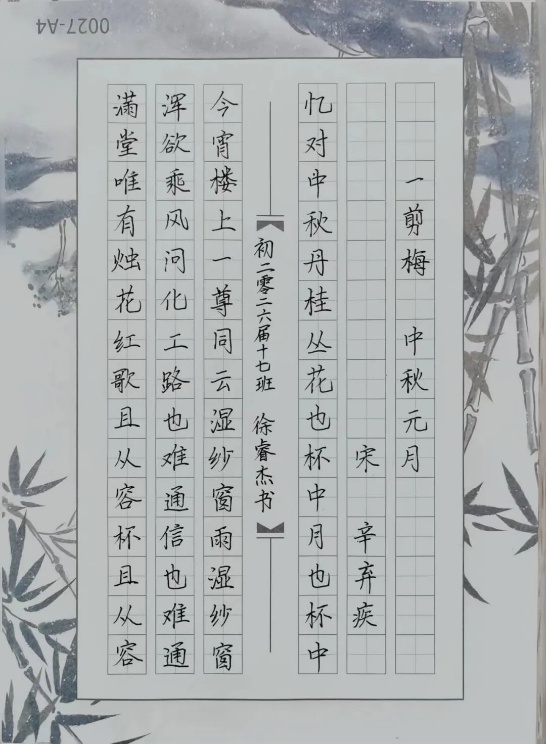 0027-A4
一剪梅 中秋元月
宋 辛弃疾
忆对中秋丹桂丛花也杯中月也杯中
初二零二六届十七班 徐睿杰书
今宵楼上一尊同云湿纱窗雨湿纱窗
浑欲乘风问化工路也难通信也难通
满堂唯有烛花红歌且从容杯且从容